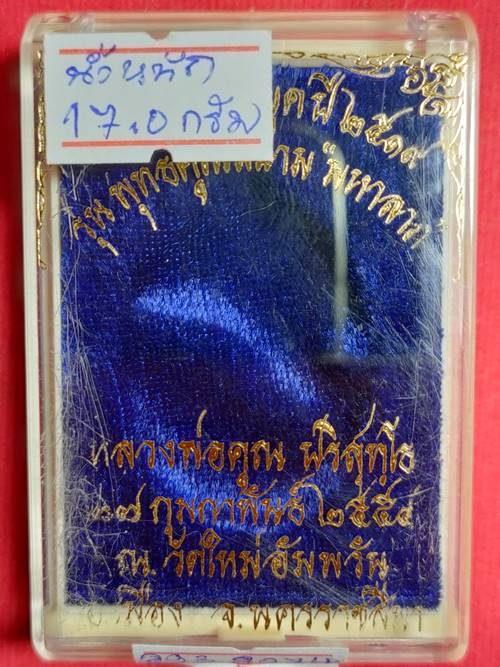 น้ำหนัก
17.0 กรัม
ปี ๒๕๑๙
รุ่น พุทธคูณสยาม "มหาลาภ"
หลวงพ่อคูณ ปริสุทฺโธ
๒๗ กุมภาพันธ์ ๒๕๕๔
ณ. วัดใหม่อัมพวัน
อ.เมือง จ.นครราชสีมา